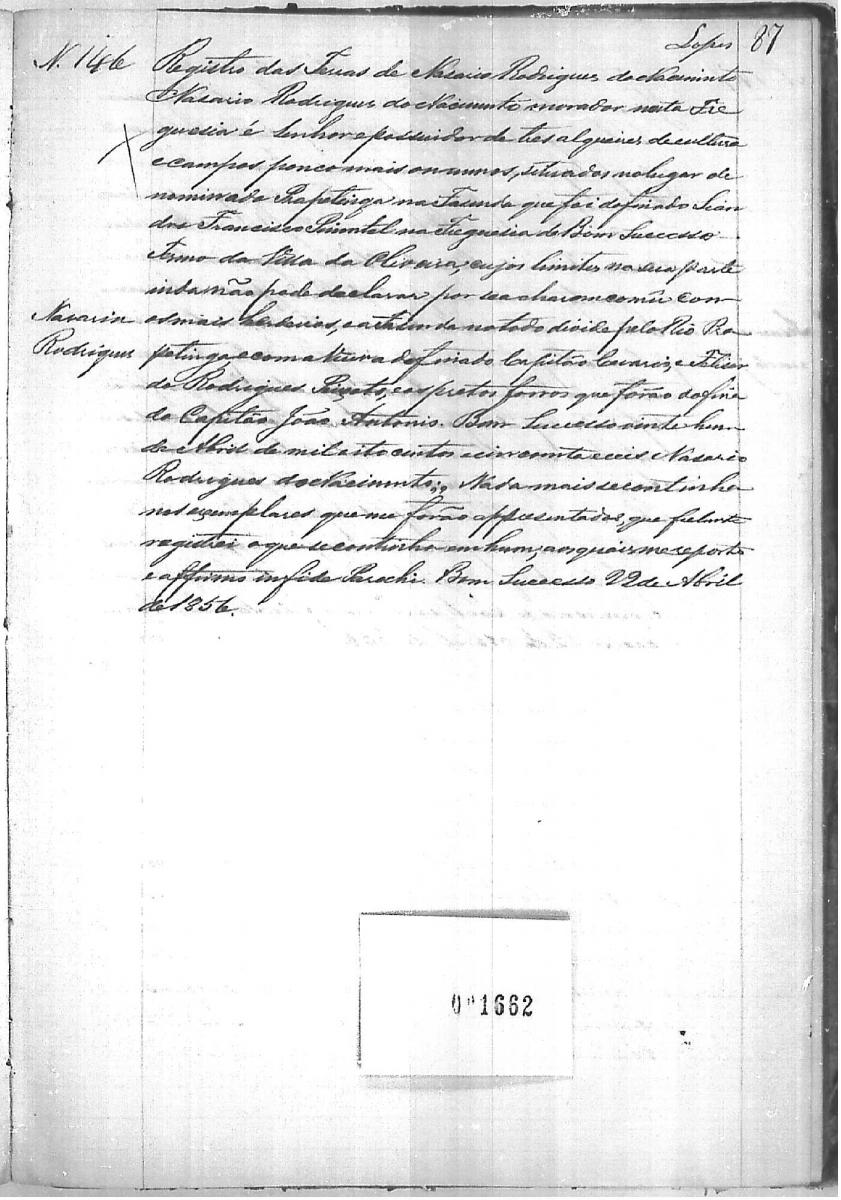 Lopes 87
N. 146
Registro das Terras de Nasario Rodrigues do Nacimento
Nasario Rodrigues do Nacimento morador nesta Fre
guesia é Senhor e possuidor de tres alqueires de cultura
e campos, pouco mais ou menos, situados no lugar de
nominado Prapetinga na Fasenda que foi do finado Lean
dro Francisco Pimentel na Freguesia de Bom Successo
termo da Villa da Oliveira, cujos limites na sua parte
não pode declarar por se acharem comũ com
Nasario
Rodrigues
os mais herdeiros, e a Fasenda no todo divide pelo Rio Pra
petinga e com a do finado Capitão e Felisar
do Rodrigues Peixoto, e os pretos forros que forão do fina
do Capitão João Antonio. Bom Successo vinte hum
de Abril de mil oito centos e cincoenta e ceis Nasario
Rodrigues do Nacimento. Nada mais se continha
nos exemplares que me forão appresentados, que fielmte
registrei o que se continha em hum, aos quais me reporto
e affirmo in fide Parochi. Bom Successo 22 de Abril
de 1856.
001662